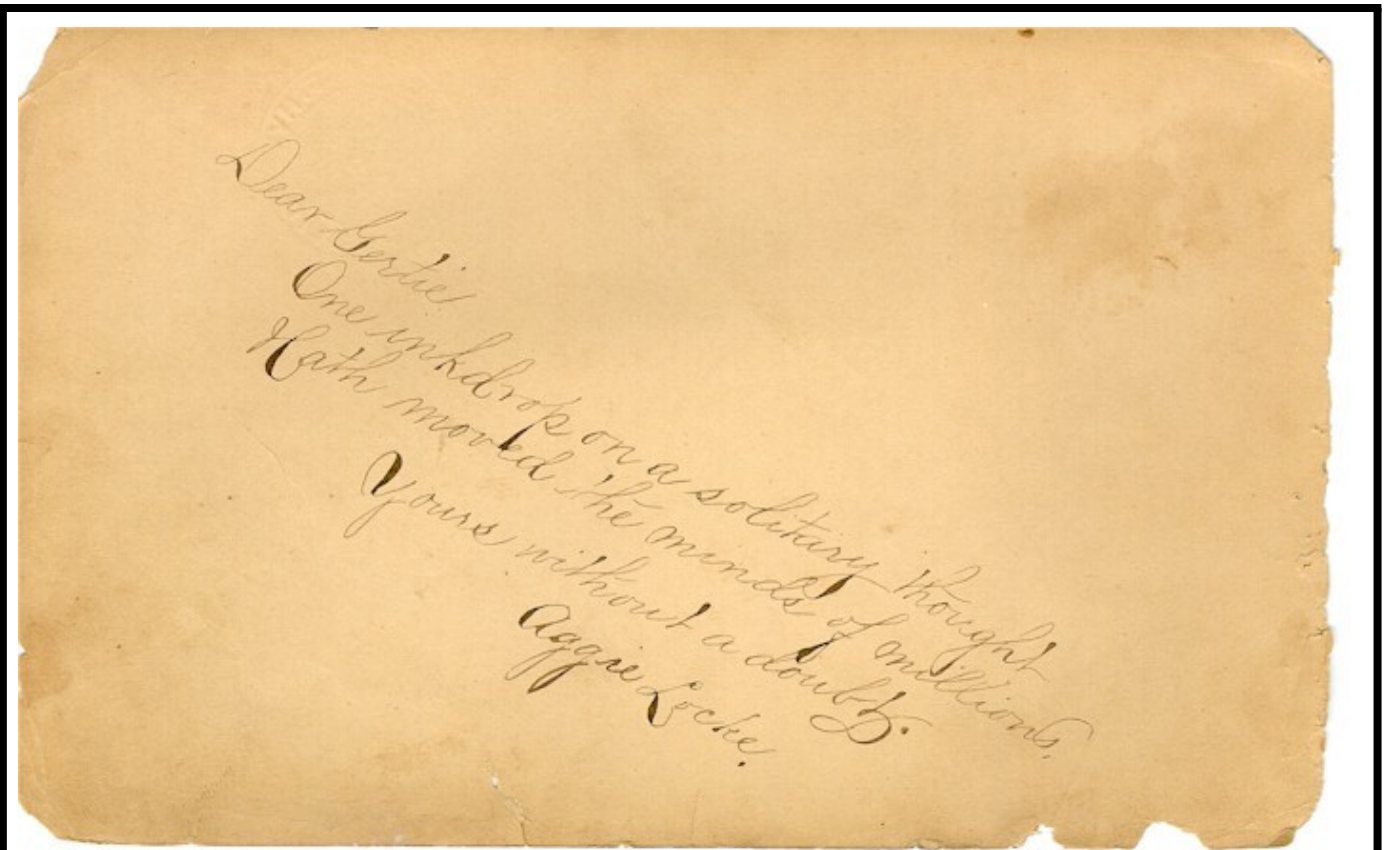 Dear Gertie
One inkdrop on a solitary thought
Hath moved the minds of millions.
Yours without a doubt.
Aggie Locke.